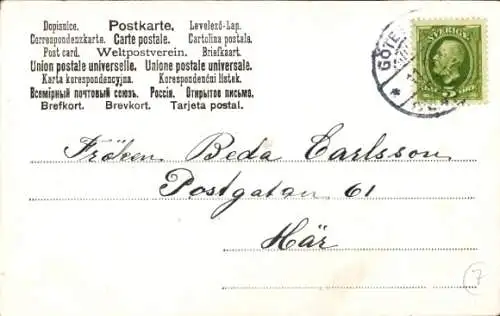 Dopisnice. Postkarte. Levelező-Lap.
Correspondenzkarte. Carte postale. Cartolina postale.
Post card. Weltpostverein. Briefkaart.
Union postale universelle. Unione postale universale.
Karta korespondencyjna. Korespondenčni listek.
Всемірный почтовый союзъ. Россія. Открытое письмо.
Brefkort. Brevkort. Tarjeta postal.
SVERIGE
5
GÖTE
Fröken Beda Carlsson
Postgatan 61
Här
7